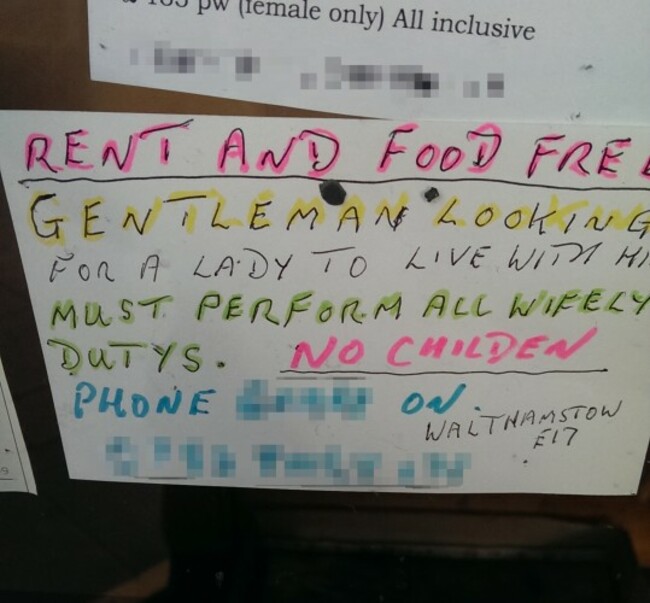 pw (female only) All inclusive
RENT AND FOOD FREE
GENTLEMAN LOOKING
FOR A LADY TO LIVE WITH HI
MUST PERFORM ALL WIFELY
DUTYS. NO CHILDEN
PHONE ON
WALTHAMSTOW
E17